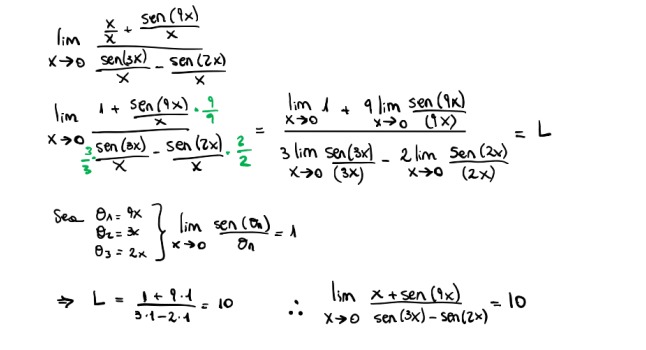 lim x→0 (x/x + sen(9x)/x) / (sen(3x)/x − sen(2x)/x)
lim x→0 (1 + sen(9x)/x · 9/9) / (3/3 · sen(3x)/x − sen(2x)/x · 2/2) = (lim x→0 1 + 9 lim x→0 sen(9x)/(9x)) / (3 lim x→0 sen(3x)/(3x) − 2 lim x→0 sen(2x)/(2x)) = L
Sea θ1 = 9x
θ2 = 3x
θ3 = 2x } lim x→0 sen(θn)/θn = 1
⇒ L = (1 + 9·1) / (3·1 − 2·1) = 10 ∴ lim x→0 (x + sen(9x)) / (sen(3x) − sen(2x)) = 10